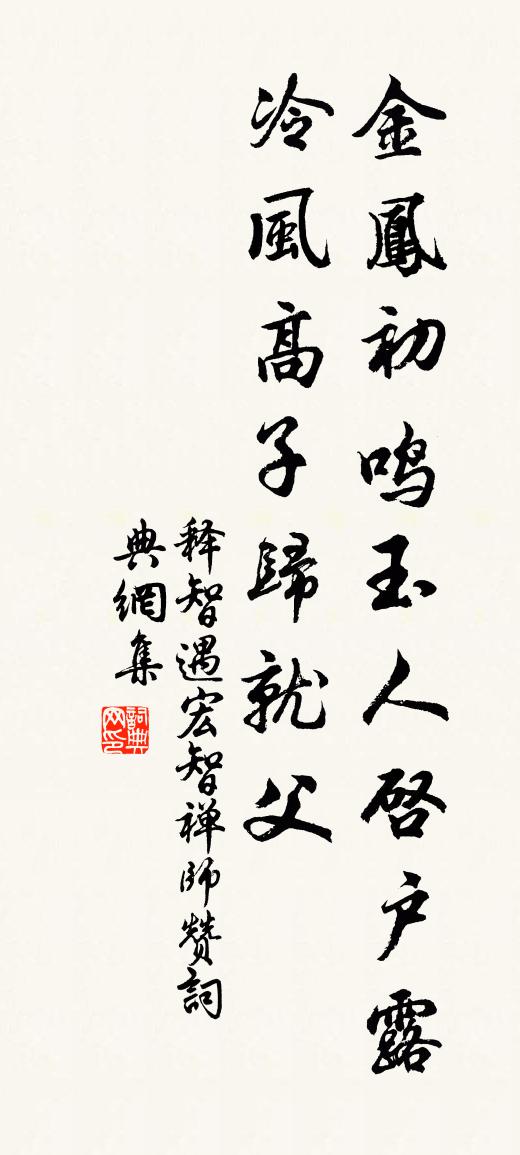 金鳳初鳴玉人啓户露
冷風高子歸就父
释智遇宏智禅師赞詞
典網集
詞典
网印